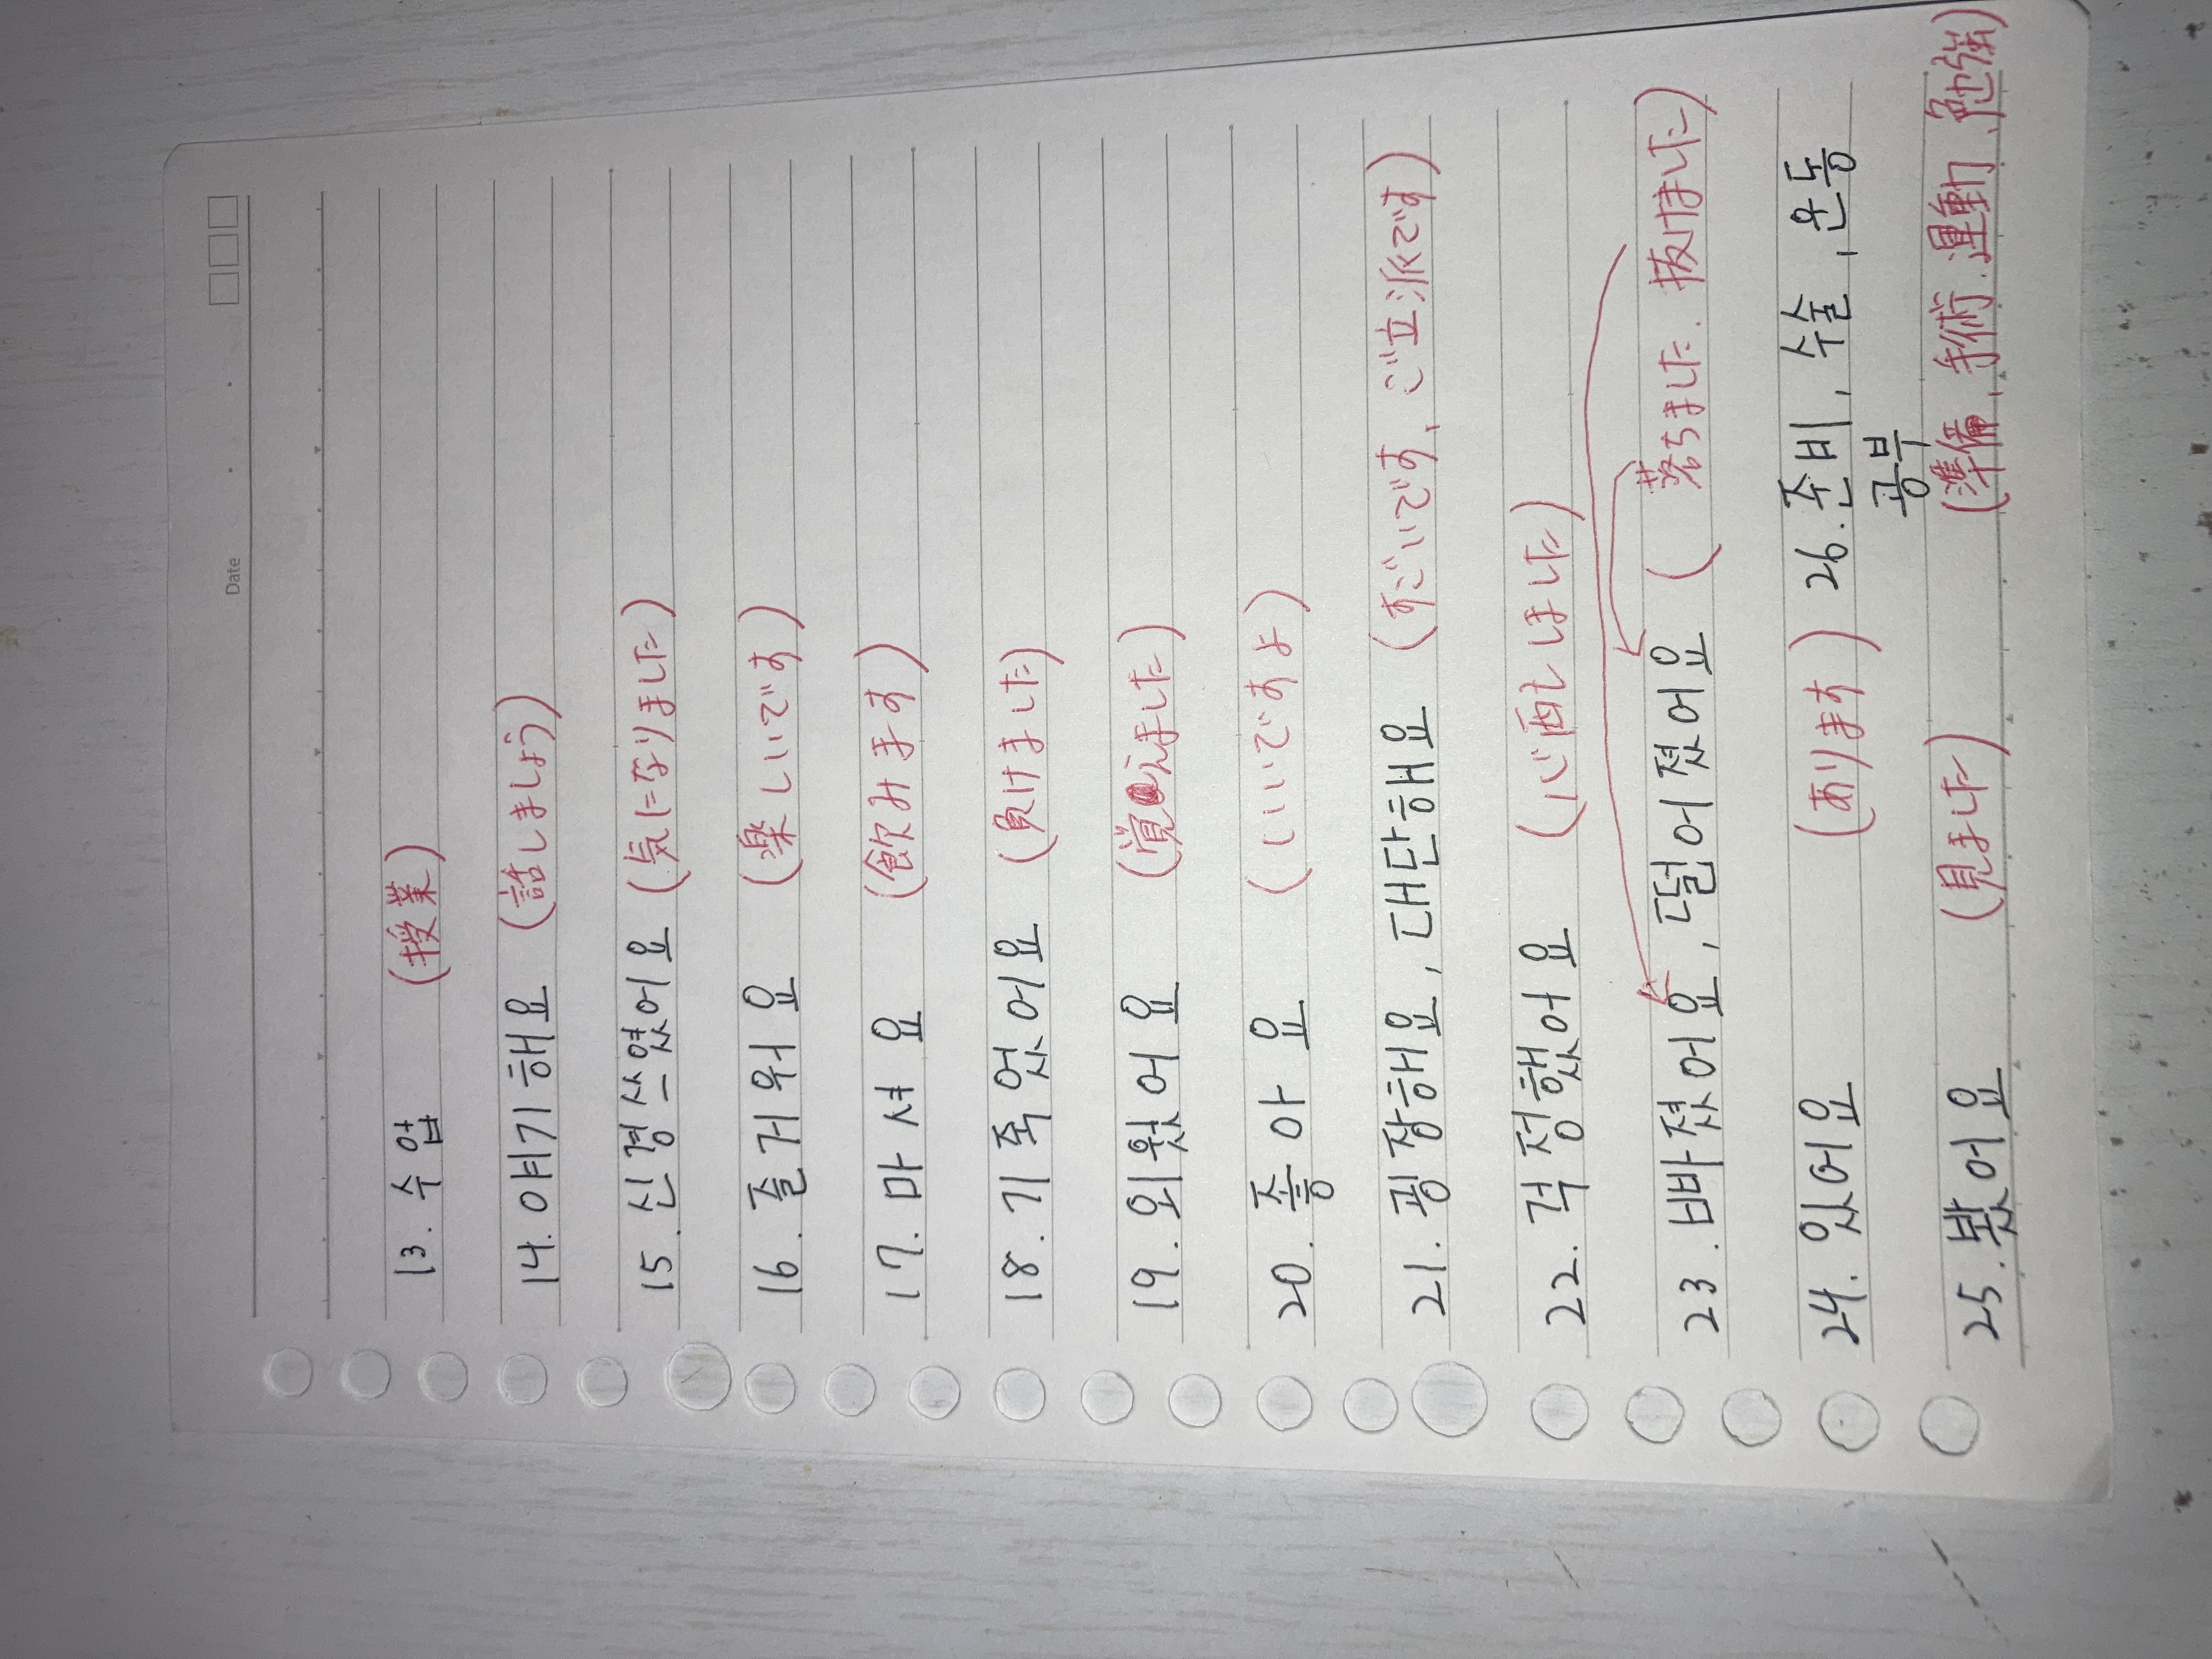 Date . .
13. 수업 (授業)
14. 얘기해요 (話しましょう)
15. 신경쓰였어요 (気になりました)
16. 즐거워요 (楽しいです)
17. 마셔요 (飲みます)
18. 기죽었어요 (負けました)
19. 외웠어요 (覚えました)
20. 좋아요 (いいですよ)
21. 굉장해요, 대단해요 (すごいです、ご立派です)
22. 걱정했어요 (心配しました)
23. 빠졌어요, 떨어졌어요 (落ちました. 抜けました)
24. 있어요 (あります) 26. 준비, 수술, 운동
공부
25. 봤어요 (見ました) (準備、手術、運動、勉強)